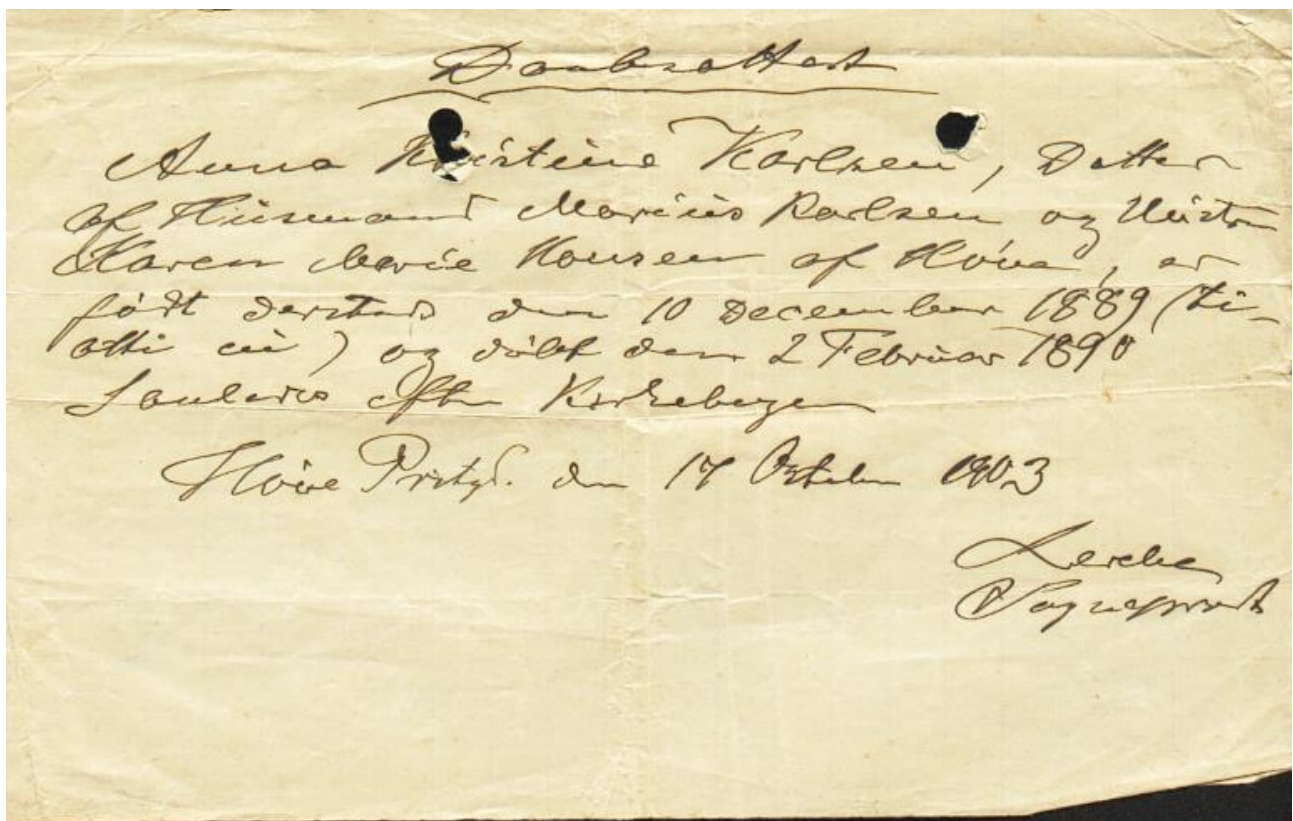 Daabsattest
Anna Kristine Karlsen, Datter
af Husmand Marius Karlsen og Hustru
Karen Marie Hansen af Höve, er
födt dersteds den 10 December 1889 (ti-
otti ni) og döbt den 2 Februar 1890
efter Kirkebogen
Höve Prstgd. den 17 October 1903
Lerche
Sognepræst